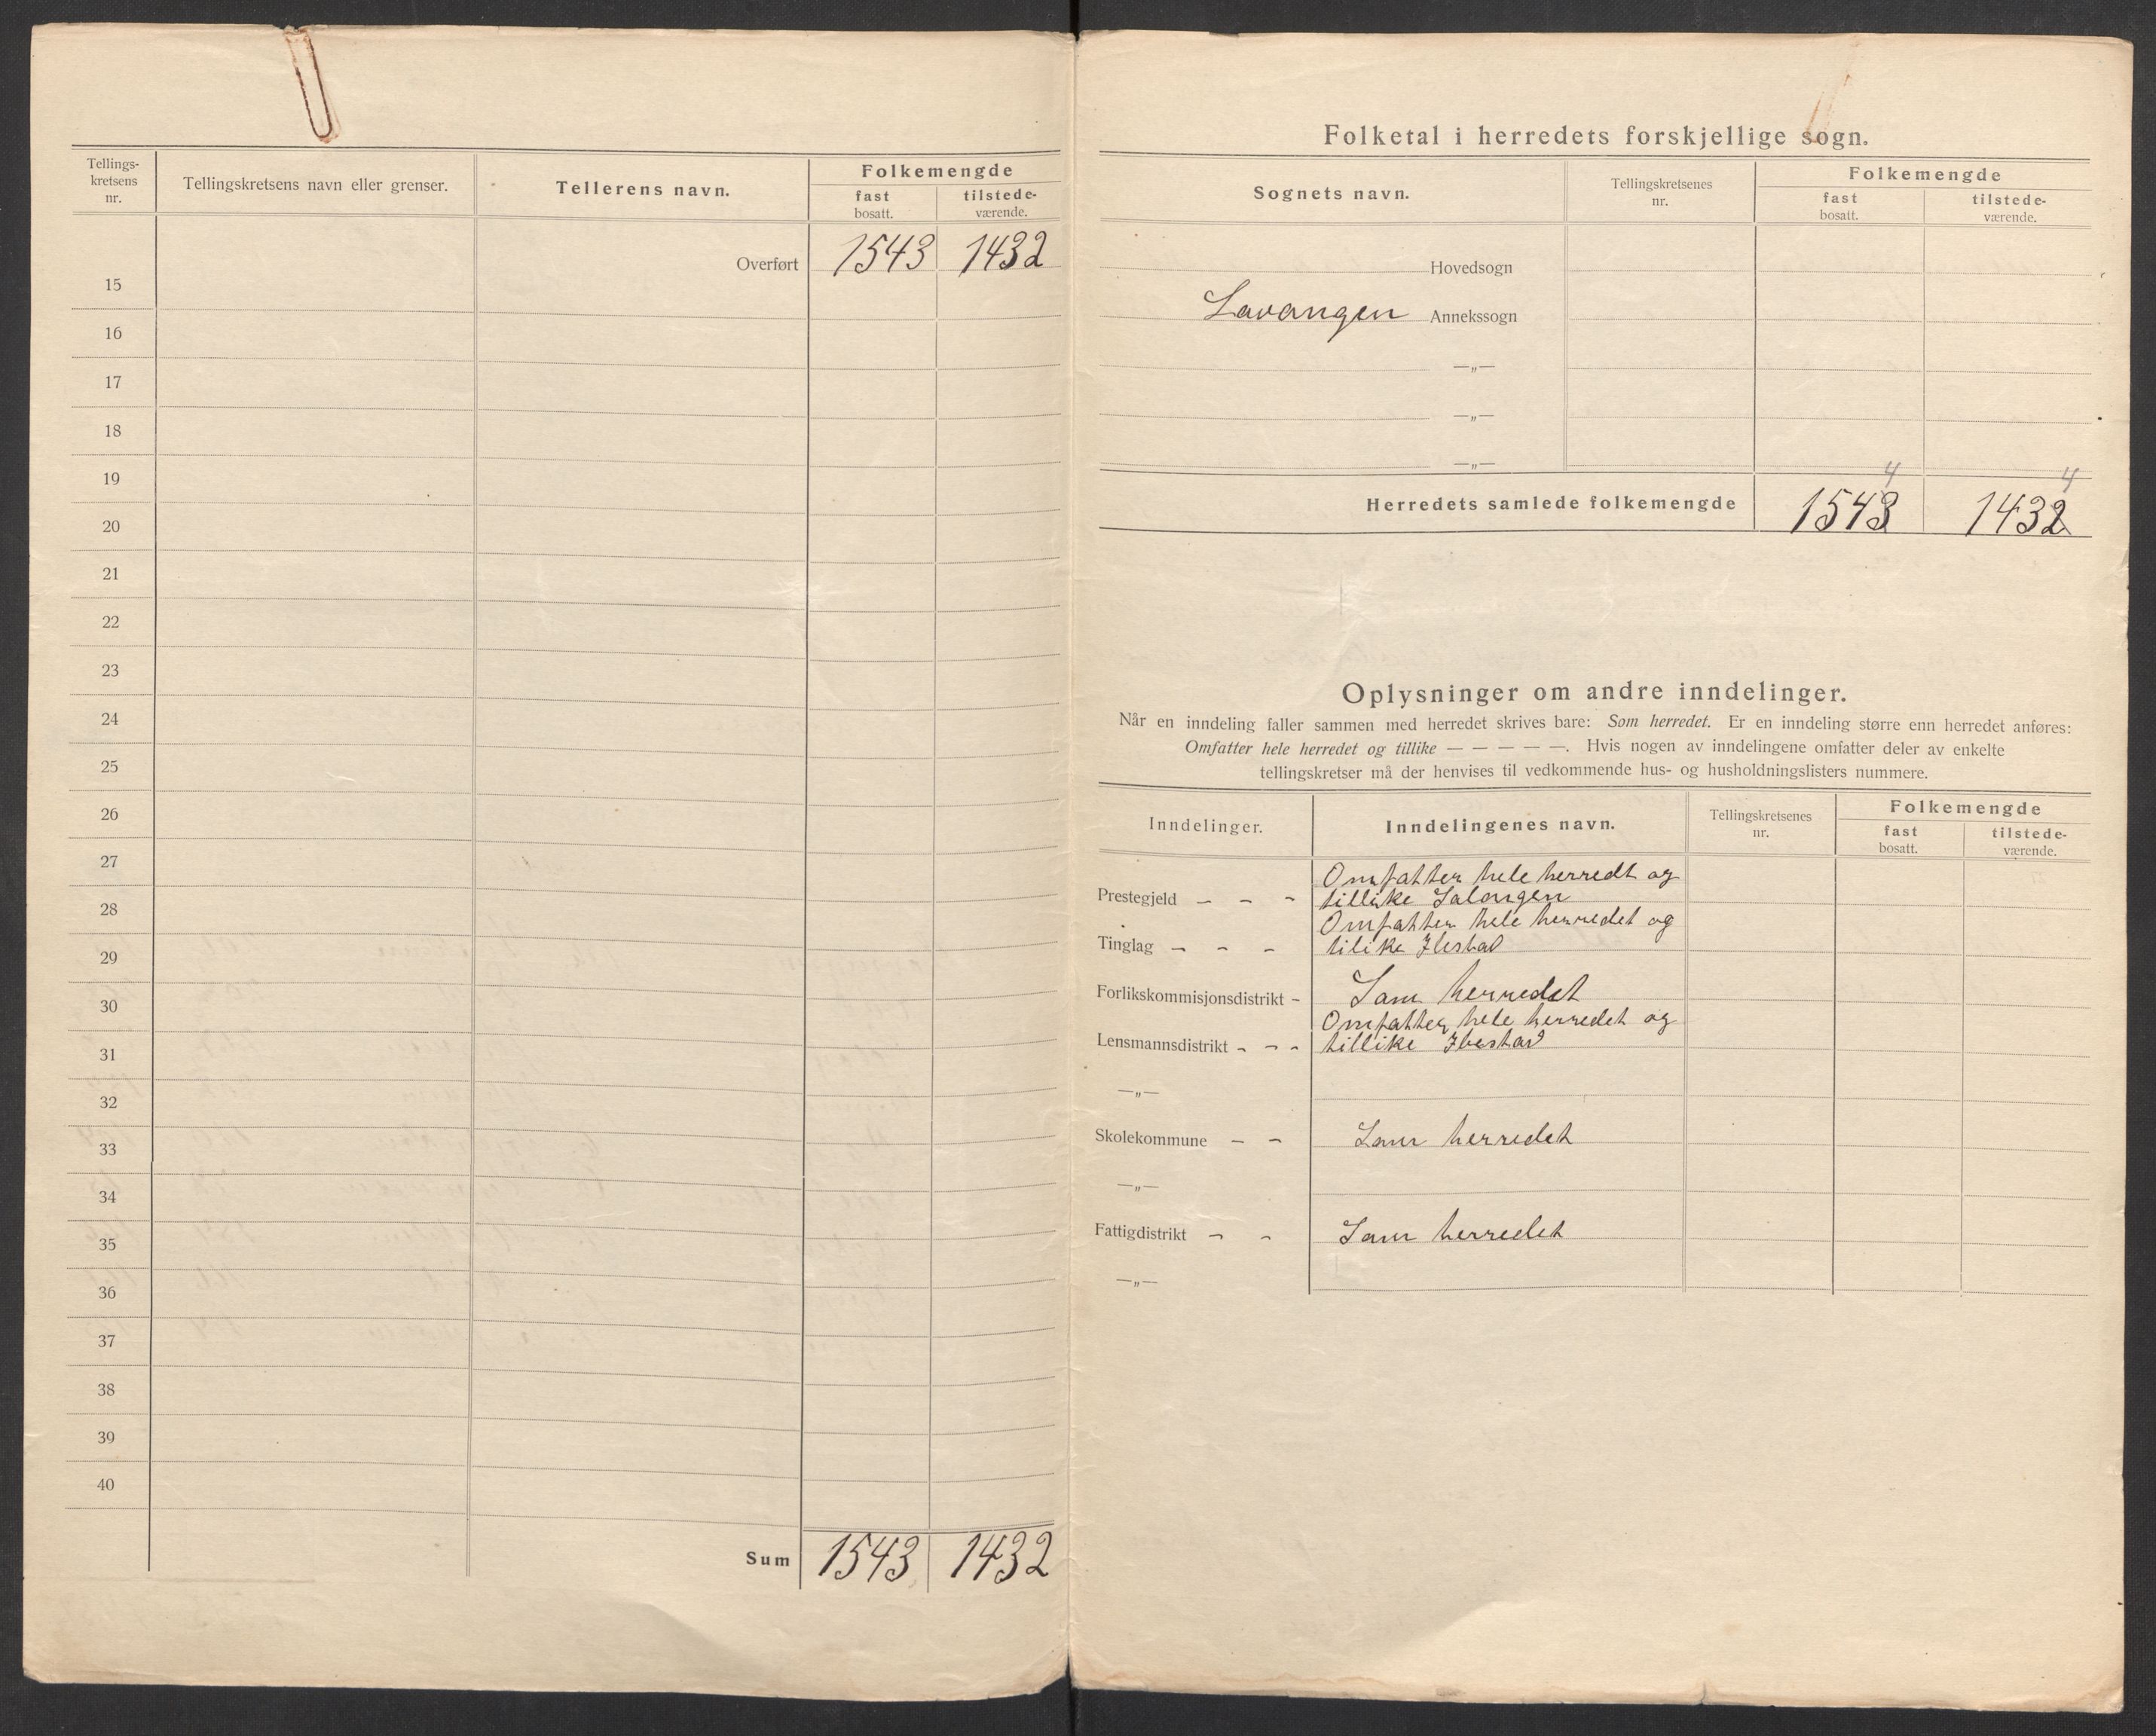 Tellings-
kretsens
nr.
Tellingskretsens navn eller grenser.
Tellerens navn.
Folkemengde
fast
bosatt.
tilstede-
værende.
Overført 1543 1432
15
16
17
18
19
20
21
22
23
24
25
26
27
28
29
30
31
32
33
34
35
36
37
38
39
40
Sum 1543 1432
Folketal i herredets forskjellige sogn.
Sognets navn.
Tellingskretsenes
nr.
Folkemengde
fast
bosatt.
tilstede-
værende.
Hovedsogn
Lavangen Annekssogn
—„—
—„—
—„—
4 4
Herredets samlede folkemengde 1543 1432
Oplysninger om andre inndelinger.
Når en inndeling faller sammen med herredet skrives bare: Som herredet. Er en inndeling større enn herredet anføres:
Omfatter hele herredet og tillike — — — — —. Hvis nogen av inndelingene omfatter deler av enkelte
tellingskretser må der henvises til vedkommende hus- og husholdningslisters nummere.
Inndelinger.
Inndelingenes navn.
Tellingskretsenes
nr.
Folkemengde
fast
bosatt.
tilstede-
værende.
Omfatter hele herredt og
Prestegjeld - - - tillike Salangen
Omfatter hele herredet og
Tinglag - - - tilike Ibestad
Forlikskommisjonsdistrikt - Som herredet
Omfatter hele herredet og
Lensmannsdistrikt - - - tillike Ibestad
—„—
Skolekommune - - Som herredet
—„—
Fattigdistrikt - - Som herredet
—„—